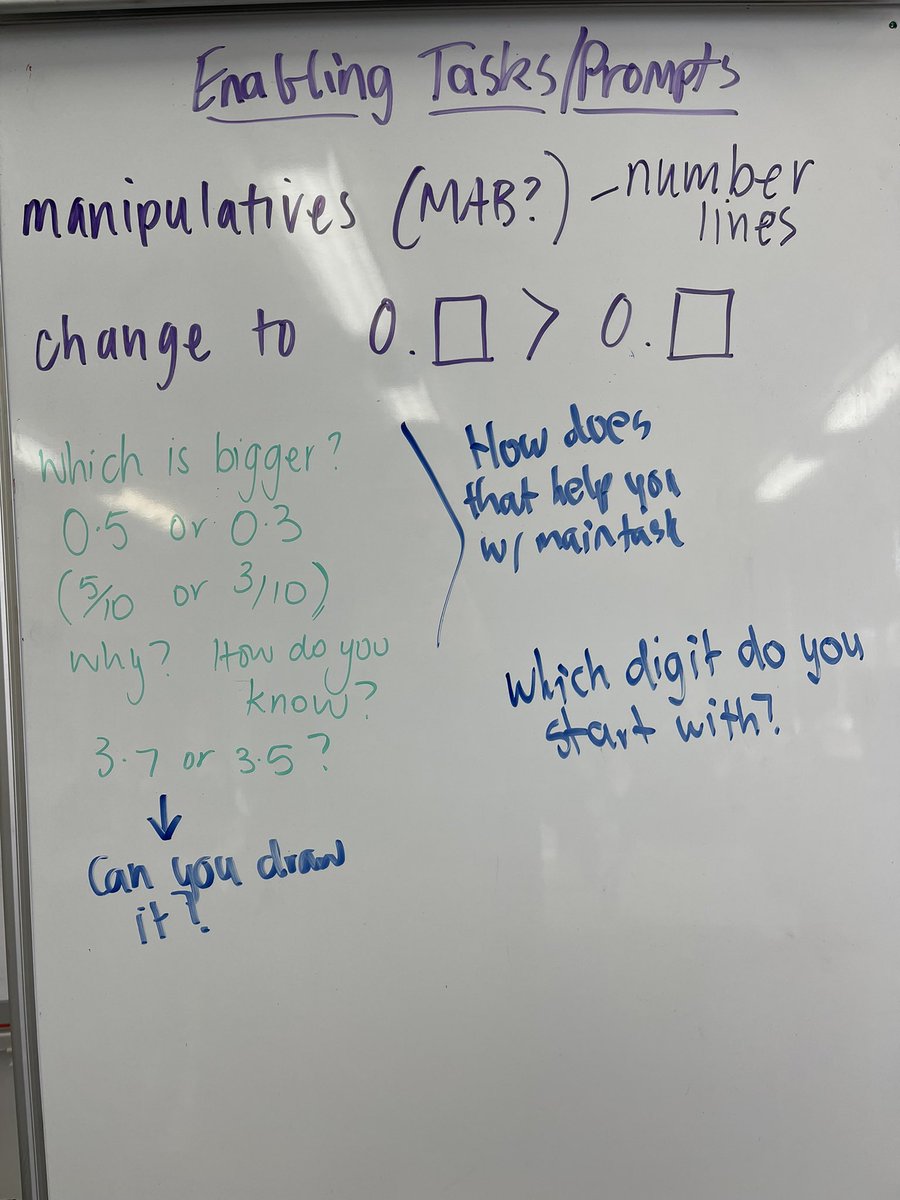 Enabling Tasks/Prompts
manipulatives (MAB?) – number
lines
change to 0.□ > 0.□
Which is bigger?
0.5 or 0.3
(5/10 or 3/10)
Why? How do you
know?
3.7 or 3.5?
↓
Can you draw
it?
How does
that help you
w/ maintask
Which digit do you
start with?